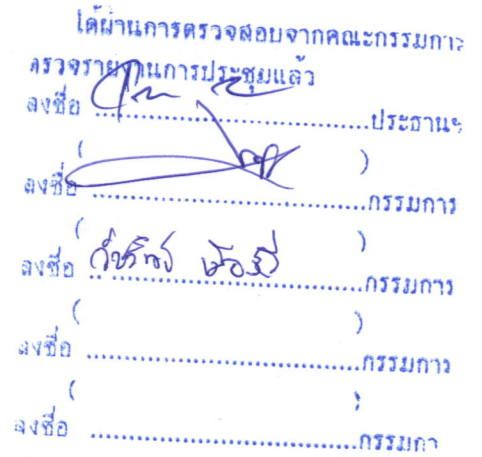 ได้ผ่านการตรวจสอบจากคณะกรรมการ
ตรวจรายงานการประชุมแล้ว
ลงชื่อ ........................................ประธานฯ
( )
ลงชื่อ ........................................กรรมการ
( )
ลงชื่อ ........................................กรรมการ
( )
ลงชื่อ ........................................กรรมการ
( )
ลงชื่อ ........................................กรรมกา